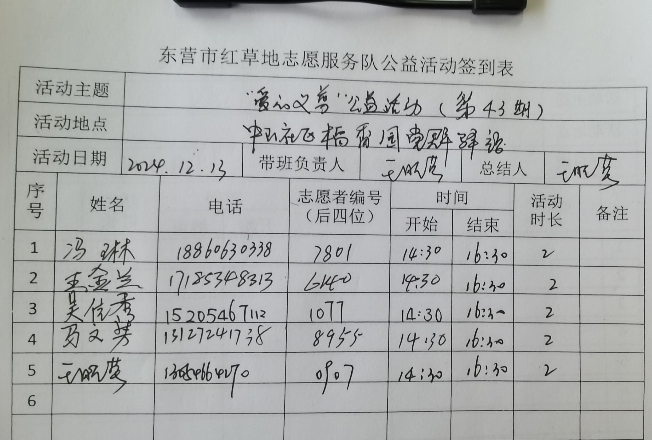 东营市红草地志愿服务队公益活动签到表
活动主题 "爱心义剪"公益活动(第43期)
活动地点 中山社区槠香园党群驿站
活动日期 2024.12.13 带班负责人 王晓莺 总结人 王晓莺
序号 姓名 电话 志愿者编号(后四位) 时间 开始 结束 活动时长 备注
1 冯琳 18860630338 7801 14:30 16:30 2
2 王金兰 17185348313 6140 14:30 16:30 2
3 吴佳秀 15205467112 1077 14:30 16:30 2
4 马文芳 13127241738 8955 14:30 16:30 2
5 王晓莺 0907 14:30 16:30 2
6